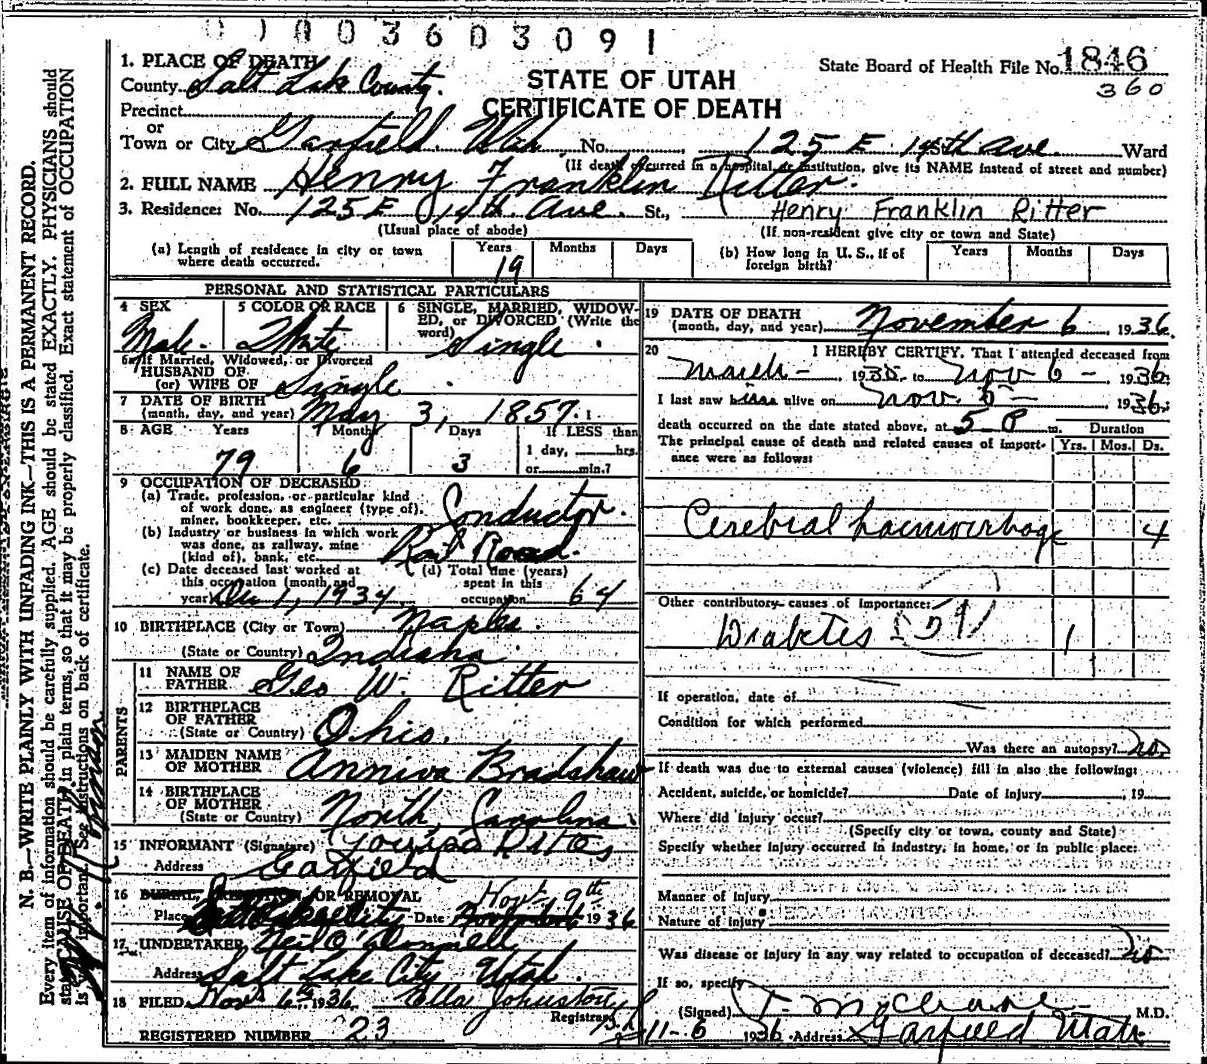 0 1 0 0 3 6 0 3 0 9 1
1. PLACE OF DEATH
County Salt Lake County.
STATE OF UTAH
CERTIFICATE OF DEATH
State Board of Health File No. 1846
360
Precinct
or
Town or City Garfield Utah No. 125 E. 14th Ave. Ward
(If death occurred in a hospital or institution, give its NAME instead of street and number)
2. FULL NAME Henry Franklin Ritter.
3. Residence: No. 125 E 14th Ave. St., Henry Franklin Ritter
(Usual place of abode) (If non-resident give city or town and State)
(a) Length of residence in city or town where death occurred. Years 19 Months Days
(b) How long in U. S., if of foreign birth? Years Months Days
PERSONAL AND STATISTICAL PARTICULARS
4 SEX Male.
5 COLOR OR RACE White
6 SINGLE, MARRIED, WIDOWED, or DIVORCED (Write the word) Single.
6a If Married, Widowed, or Divorced
HUSBAND OF
(or) WIFE OF Single
7 DATE OF BIRTH
(month, day, and year) May 3, 1857.
8 AGE Years 79 Months 6 Days 3 If LESS than
1 day, hrs.
or min.?
9 OCCUPATION OF DECEASED
(a) Trade, profession, or particular kind
of work done, as engineer (type of),
miner, bookkeeper, etc. Conductor.
(b) Industry or business in which work
was done, as railway, mine
(kind of), bank, etc. Rail Road.
(c) Date deceased last worked at
this occupation (month and
year) 1, 1934
(d) Total time (years)
spent in this
occupation 64
10 BIRTHPLACE (City or Town) Maples.
(State or Country) Indiana
PARENTS
11 NAME OF
FATHER Geo W. Ritter
12 BIRTHPLACE
OF FATHER
(State or Country) Ohio.
13 MAIDEN NAME
OF MOTHER Bradshaw
14 BIRTHPLACE
OF MOTHER
(State or Country) North Carolina.
15 INFORMANT (Signature)
Address Garfield
16 BURIAL, OR REMOVAL Nov. 9th
Place City Date 1936
17 UNDERTAKER Neil O'Donnell
Address Salt Lake City, Utah.
18 FILED Nov. 6th 1936 Ella Johnston
Registrar
REGISTERED NUMBER 23
19 DATE OF DEATH
(month, day, and year) November 6, 1936.
20 I HEREBY CERTIFY, That I attended deceased from
March - 1935 to Nov 6 - 1936
I last saw him alive on Nov. 5 - 1936.
death occurred on the date stated above, at 5 P m. Duration
The principal cause of death and related causes of importance were as follows: Yrs. Mos. Ds.
Cerebral haemorrhage 4
Other contributory causes of importance:
Diabetes 59 1
If operation, date of
Condition for which performed
Was there an autopsy? no.
If death was due to external causes (violence) fill in also the following:
Accident, suicide, or homicide? Date of injury , 19
Where did injury occur?
(Specify city or town, county and State)
Specify whether injury occurred in industry, in home, or in public place:
Manner of injury
Nature of injury
Was disease or injury in any way related to occupation of deceased? no
If so, specify
(Signed) M.D.
11-6 1936 Address Garfield Utah
N. B.—WRITE PLAINLY WITH UNFADING INK—THIS IS A PERMANENT RECORD.
Every item of information should be carefully supplied. AGE should be stated EXACTLY. PHYSICIANS should
state CAUSE OF DEATH in plain terms, so that it may be properly classified. Exact statement of OCCUPATION
is very important. See instructions on back of certificate.